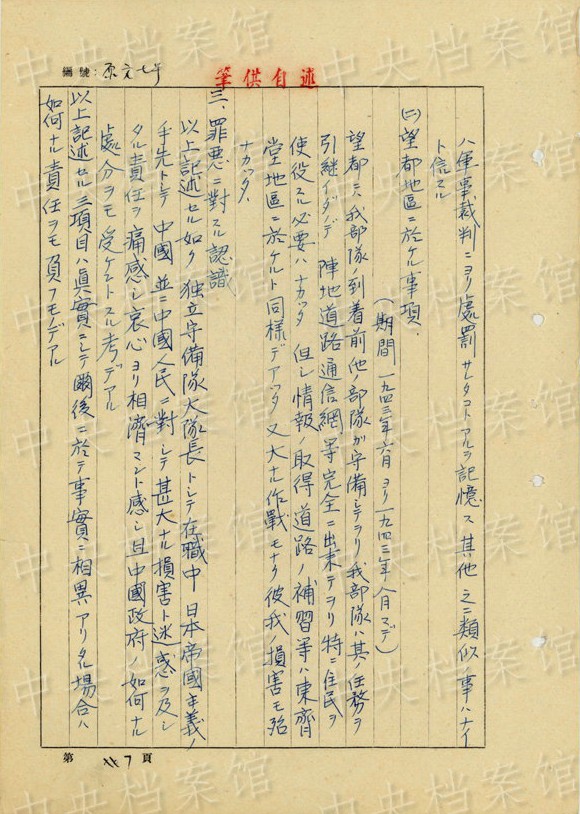 編號：原文七号
筆供自述
ハ軍事裁判ニヨリ處罰サレタコトアルヲ記憶ス 其他之ニ類似ノ事ハナイ
ト信スル
(二)望都地區ニ於ケル事項、
(期間 一九四三年六月ヨリ一九四三年八月マデ)
望都ニハ我部隊ノ到着前他部隊ガ守備シテヲリ我部隊ハ其ノ任務ヲ
引継イダノデ 陣地道路通信網等完全ニ出来テヲリ特ニ住民ヲ
使役スル必要ハナカッタ 但シ情報ノ取得道路ノ補習等ハ東齊
堂地區ニ於ケルト同様デアッタ 又大ナル作戰モナク彼我ノ損害モ殆
ナカッタ、
三、罪悪ニ對スル認識
以上記述セル如ク 独立守備隊大隊長トシテ在職中 日本帝國主義ノ
手先トシテ 中國並ニ中國人民ニ對シテ甚大ナル損害ト迷惑ヲ及シ
タル責任ヲ痛感シ衷心ヨリ相濟マント感シ且中國政府ノ如何ナル
處分ヲモ受ケントスル考デアル
以上記述セル三項目ハ眞實ニシテ爾後ニ於テ事實ニ相異アリタル場合ハ
如何ナル責任ヲモ負フモノデアル
第 7 頁
中央档案馆